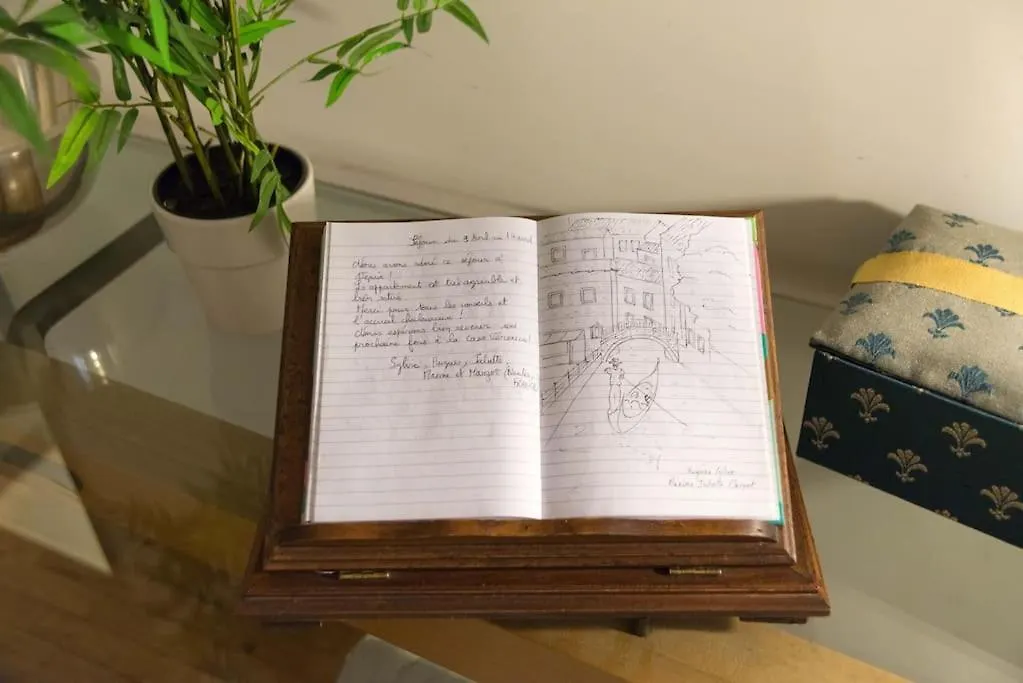 Séjour du 9 avril au 14 avril
Nous avons adoré ce séjour à
L'appartement est très agréable et
très situé.
Merci pour tous les conseils et
l'accueil chaleureux !
Nous espérons bien revenir une
prochaine fois à la Casa
Sylvie, Hugues, Juliette,
Maxime et Margot (Nantes,
France)
Hugues Sylvie
Maxime Juliette Margot